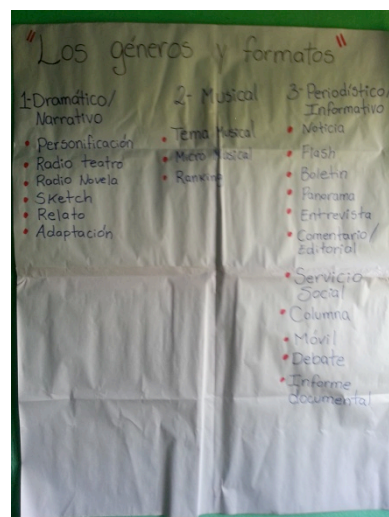 "Los géneros y formatos"
1-Dramático/
Narrativo
• Personificación
• Radio teatro
• Radio Novela
• Sketch
• Relato
• Adaptación
2- Musical
• Tema Musical
• Micro Musical
• Ranking
3- Periodístico/
Informativo
• Noticia
• Flash
• Boletin
• Panorama
• Entrevista
• Comentario/
Editorial
• Servicio
Social
• Columna
• Móvil
• Debate
• Informe
documental